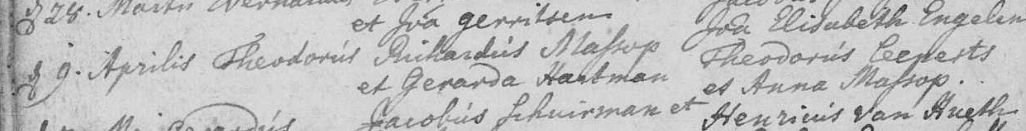 28. Martii
et Joa gerritsen Joa Elisabeth Engelen
9. Aprilis Theodorús Richardús Massop Theodorús Ceperts
et Gerarda Hartman et Anna Massop.
Jacobús Schuirman et Henricús Van Hueth